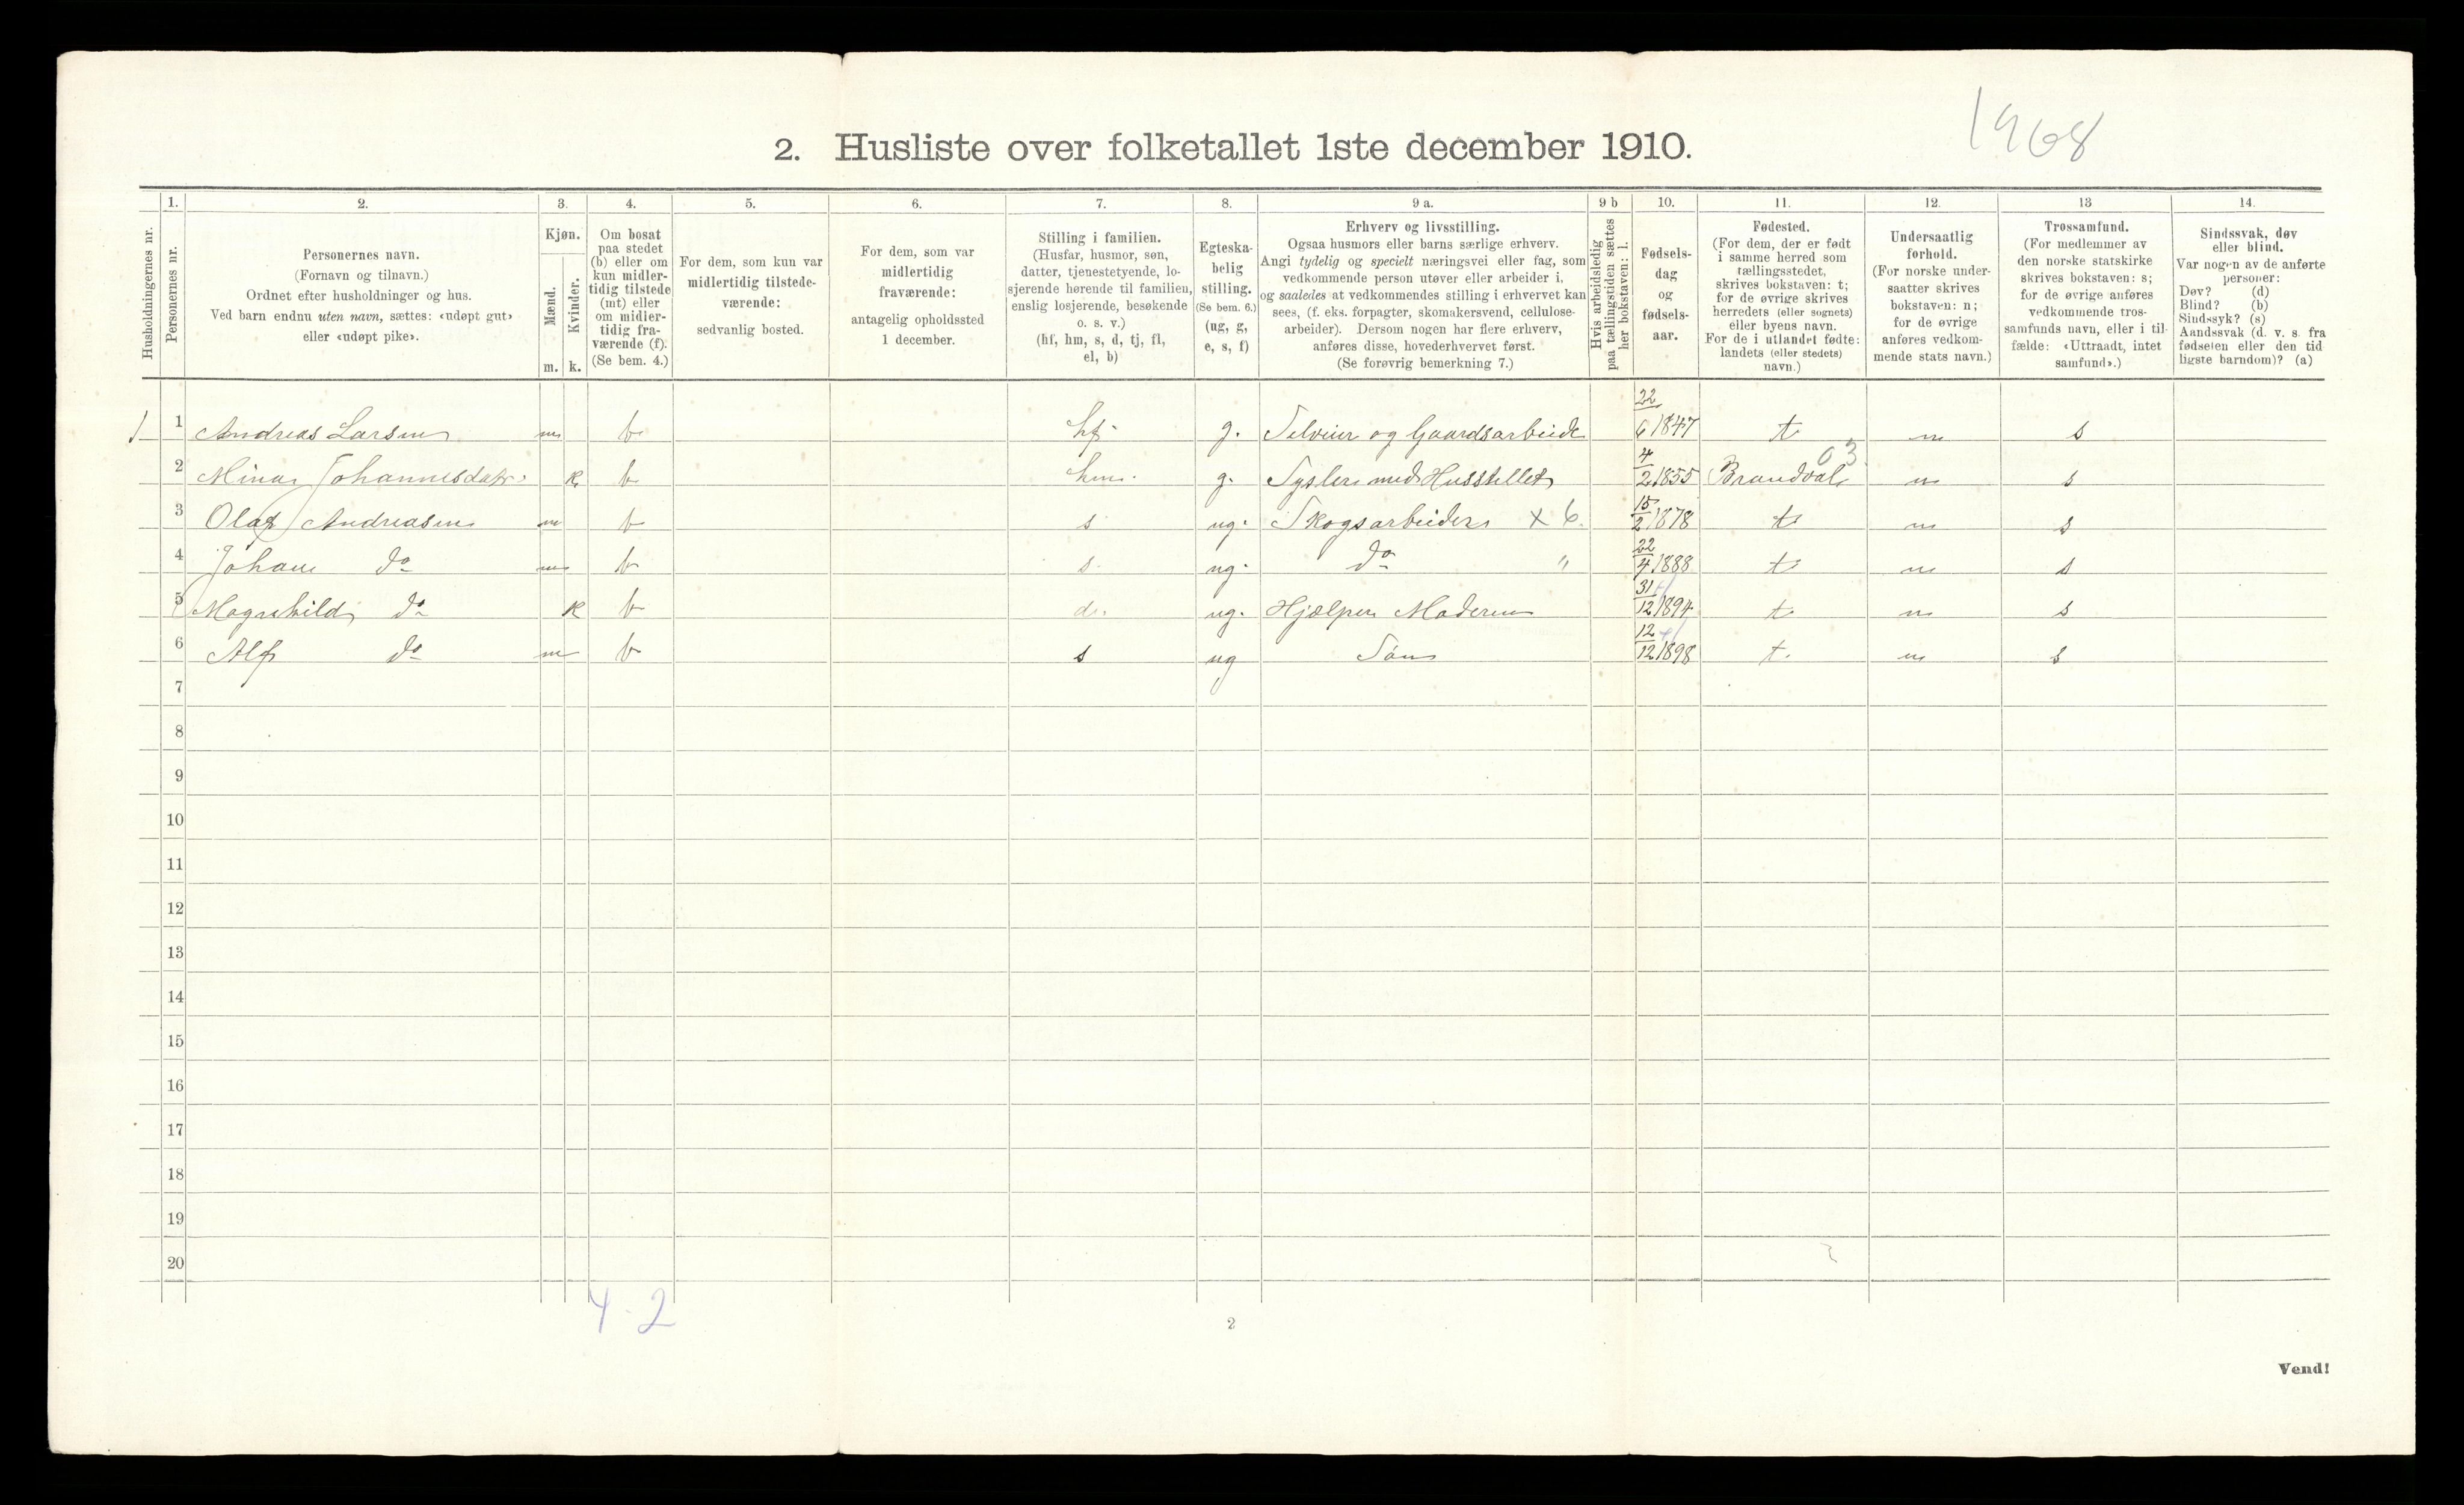 1968
2. Husliste over folketallet 1ste december 1910.
Husholdningernes nr.
1.
Personernes nr.
2.
Personernes navn.
(Fornavn og tilnavn.)
Ordnet efter husholdninger og hus.
Ved barn endnu uten navn, sættes: «udøpt gut»
eller «udøpt pike».
3.
Kjøn.
Mænd.
Kvinder.
m. k.
4.
Om bosat
paa stedet
(b) eller om
kun midler-
tidig tilstede
(mt) eller
om midler-
tidig fra-
værende (f).
(Se bem. 4.)
5.
For dem, som kun var
midlertidig tilstede-
værende:
sedvanlig bosted.
6.
For dem, som var
midlertidig
fraværende:
antagelig opholdssted
1 december.
7.
Stilling i familien.
(Husfar, husmor, søn,
datter, tjenestetyende, lo-
sjerende hørende til familien,
enslig losjerende, besøkende
o. s. v.)
(hf, hm, s, d, tj, fl,
el, b)
8.
Egteska-
belig
stilling.
(Se bem. 6.)
(ug, g,
e, s, f)
9 a.
Erhverv og livsstilling.
Ogsaa husmors eller barns særlige erhverv.
Angi tydelig og specielt næringsvei eller fag, som
vedkommende person utøver eller arbeider i,
og saaledes at vedkommendes stilling i erhvervet kan
sees, (f. eks. forpagter, skomakersvend, cellulose-
arbeider). Dersom nogen har flere erhverv,
anføres disse, hovederhvervet først.
(Se forøvrig bemerkning 7.)
9 b
Hvis arbeidsledig
paa tællingstiden sættes
her bokstaven: l.
10.
Fødsels-
dag
og
fødsels-
aar.
11.
Fødested.
(For dem, der er født
i samme herred som
tællingsstedet,
skrives bokstaven: t;
for de øvrige skrives
herredets (eller sognets)
eller byens navn.
For de i utlandet fødte:
landets (eller stedets)
navn.)
12.
Undersaatlig
forhold.
(For norske under-
saatter skrives
bokstaven: n;
for de øvrige
anføres vedkom-
mende stats navn.)
13
Trossamfund.
(For medlemmer av
den norske statskirke
skrives bokstaven: s;
for de øvrige anføres
vedkommende tros-
samfunds navn, eller i til-
fælde: «Uttraadt, intet
samfund».)
14.
Sindssvak, døv
eller blind.
Var nogen av de anførte
personer:
Døv? (d)
Blind? (b)
Sindssyk? (s)
Aandssvak (d. v. s. fra
fødselen eller den tid
ligste barndom)? (a)
1 1 Andreas Larsen m b hf. g. Selveier og Gaardsarbeide 22/6 1847 t n s
2 Mina Johannesdatr. k b hm. g. Sysler med Husstellet 4/2 1855 Brandval 03 n s
3 Olaf Andreasen m b s ug. Skogsarbeider x 6. 15/2 1878 t n s
4 Johan do m b s. ug. do " 22/4 1888 t n s
5 Magnhild do k b d. ug. Hjælper Moderen 31/12 1894 t n s
6 Alf do m b s ug Søn 12/12 1898 t. n s
7
8
9
10
11
12
13
14
15
16
17
18
19
20
4-2
2
Vend!